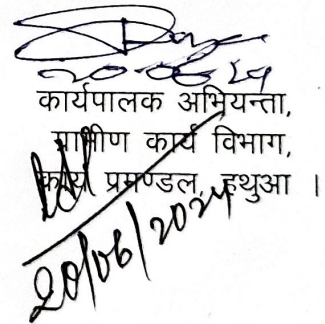 20.06.24
कार्यपालक अभियन्ता,
ग्रामीण कार्य विभाग,
कार्य प्रमण्डल, हथुआ ।
20/06/2024